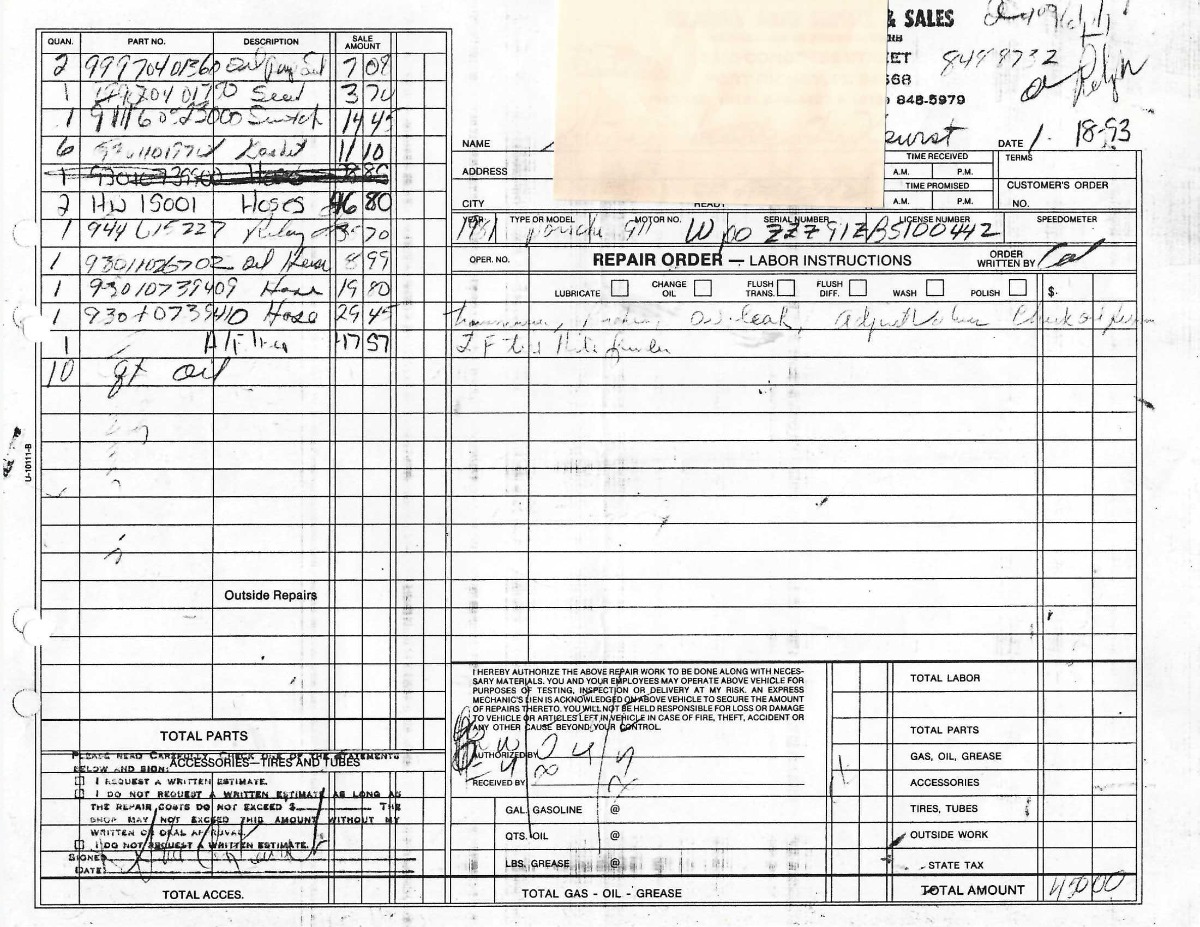 & SALES
ET 8498732
668
848-5979
QUAN. PART NO. DESCRIPTION SALE AMOUNT
2 99970401360 Oil Seal 7 08
1 Seal 3 70
1 Switch 14 45
6 Gasket 11 10
1
2 HW 15001 Hoses 46 80
1 944615227 Relay 70
1 93011026702 Oil 8 99
1 93010739409 Hose 19 80
1 93010739410 Hose 29 45
1 17 57
10 qt oil
Outside Repairs
TOTAL PARTS
ACCESSORIES—TIRES AND TUBES
PLEASE READ CAREFULLY, CHECK ONE OF THE STATEMENTS
BELOW AND SIGN:
I REQUEST A WRITTEN ESTIMATE.
I DO NOT REQUEST A WRITTEN ESTIMATE AS LONG AS
THE REPAIR COSTS DO NOT EXCEED $ THE
SHOP MAY NOT EXCEED THIS AMOUNT WITHOUT MY
WRITTEN OR ORAL APPROVAL.
I DO NOT REQUEST A WRITTEN ESTIMATE.
SIGNED
DATE:
TOTAL ACCES.
U-10111-B
NAME DATE 1 18-93
ADDRESS TIME RECEIVED A.M. P.M. TERMS
CITY READY TIME PROMISED A.M. P.M. CUSTOMER'S ORDER NO.
YEAR TYPE OR MODEL MOTOR NO. SERIAL NUMBER LICENSE NUMBER SPEEDOMETER
1981 Porsche 911 WPO ZZZ91ZBS100442
OPER. NO. REPAIR ORDER — LABOR INSTRUCTIONS ORDER WRITTEN BY
LUBRICATE CHANGE OIL FLUSH TRANS. FLUSH DIFF. WASH POLISH $
oil leak, Adjust Valves Check
I HEREBY AUTHORIZE THE ABOVE REPAIR WORK TO BE DONE ALONG WITH NECES-
SARY MATERIALS. YOU AND YOUR EMPLOYEES MAY OPERATE ABOVE VEHICLE FOR
PURPOSES OF TESTING, INSPECTION OR DELIVERY AT MY RISK. AN EXPRESS
MECHANIC'S LIEN IS ACKNOWLEDGED ON ABOVE VEHICLE TO SECURE THE AMOUNT
OF REPAIRS THERETO. YOU WILL NOT BE HELD RESPONSIBLE FOR LOSS OR DAMAGE
TO VEHICLE OR ARTICLES LEFT IN VEHICLE IN CASE OF FIRE, THEFT, ACCIDENT OR
ANY OTHER CAUSE BEYOND YOUR CONTROL.
AUTHORIZED BY
RECEIVED BY
GAL. GASOLINE @
QTS. OIL @
LBS. GREASE @
TOTAL GAS - OIL - GREASE
TOTAL LABOR
TOTAL PARTS
GAS, OIL, GREASE
ACCESSORIES
TIRES, TUBES
OUTSIDE WORK
STATE TAX
TOTAL AMOUNT